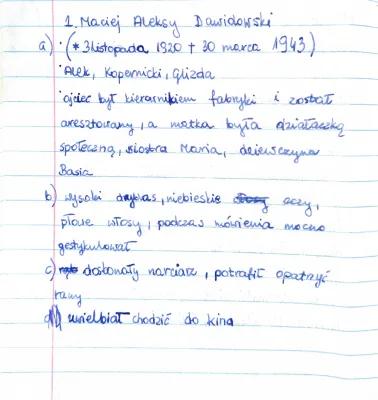 1. Maciej Aleksy Dawidowski
a) · (* 3 listopada 1920 † 30 marca 1943)
· Alek, Kopernicki, Glizda
· ojciec był kierownikiem fabryki i został
aresztowany, a matka była działaczką
społeczną, siostra Maria, dziewczyna
Basia
b) wysoki drybas, niebieskie oczy,
płowe włosy, podczas mówienia mocno
gestykulował
c) doskonały narciarz, potrafił opatrzyć
rany
d) uwielbiał chodzić do kina